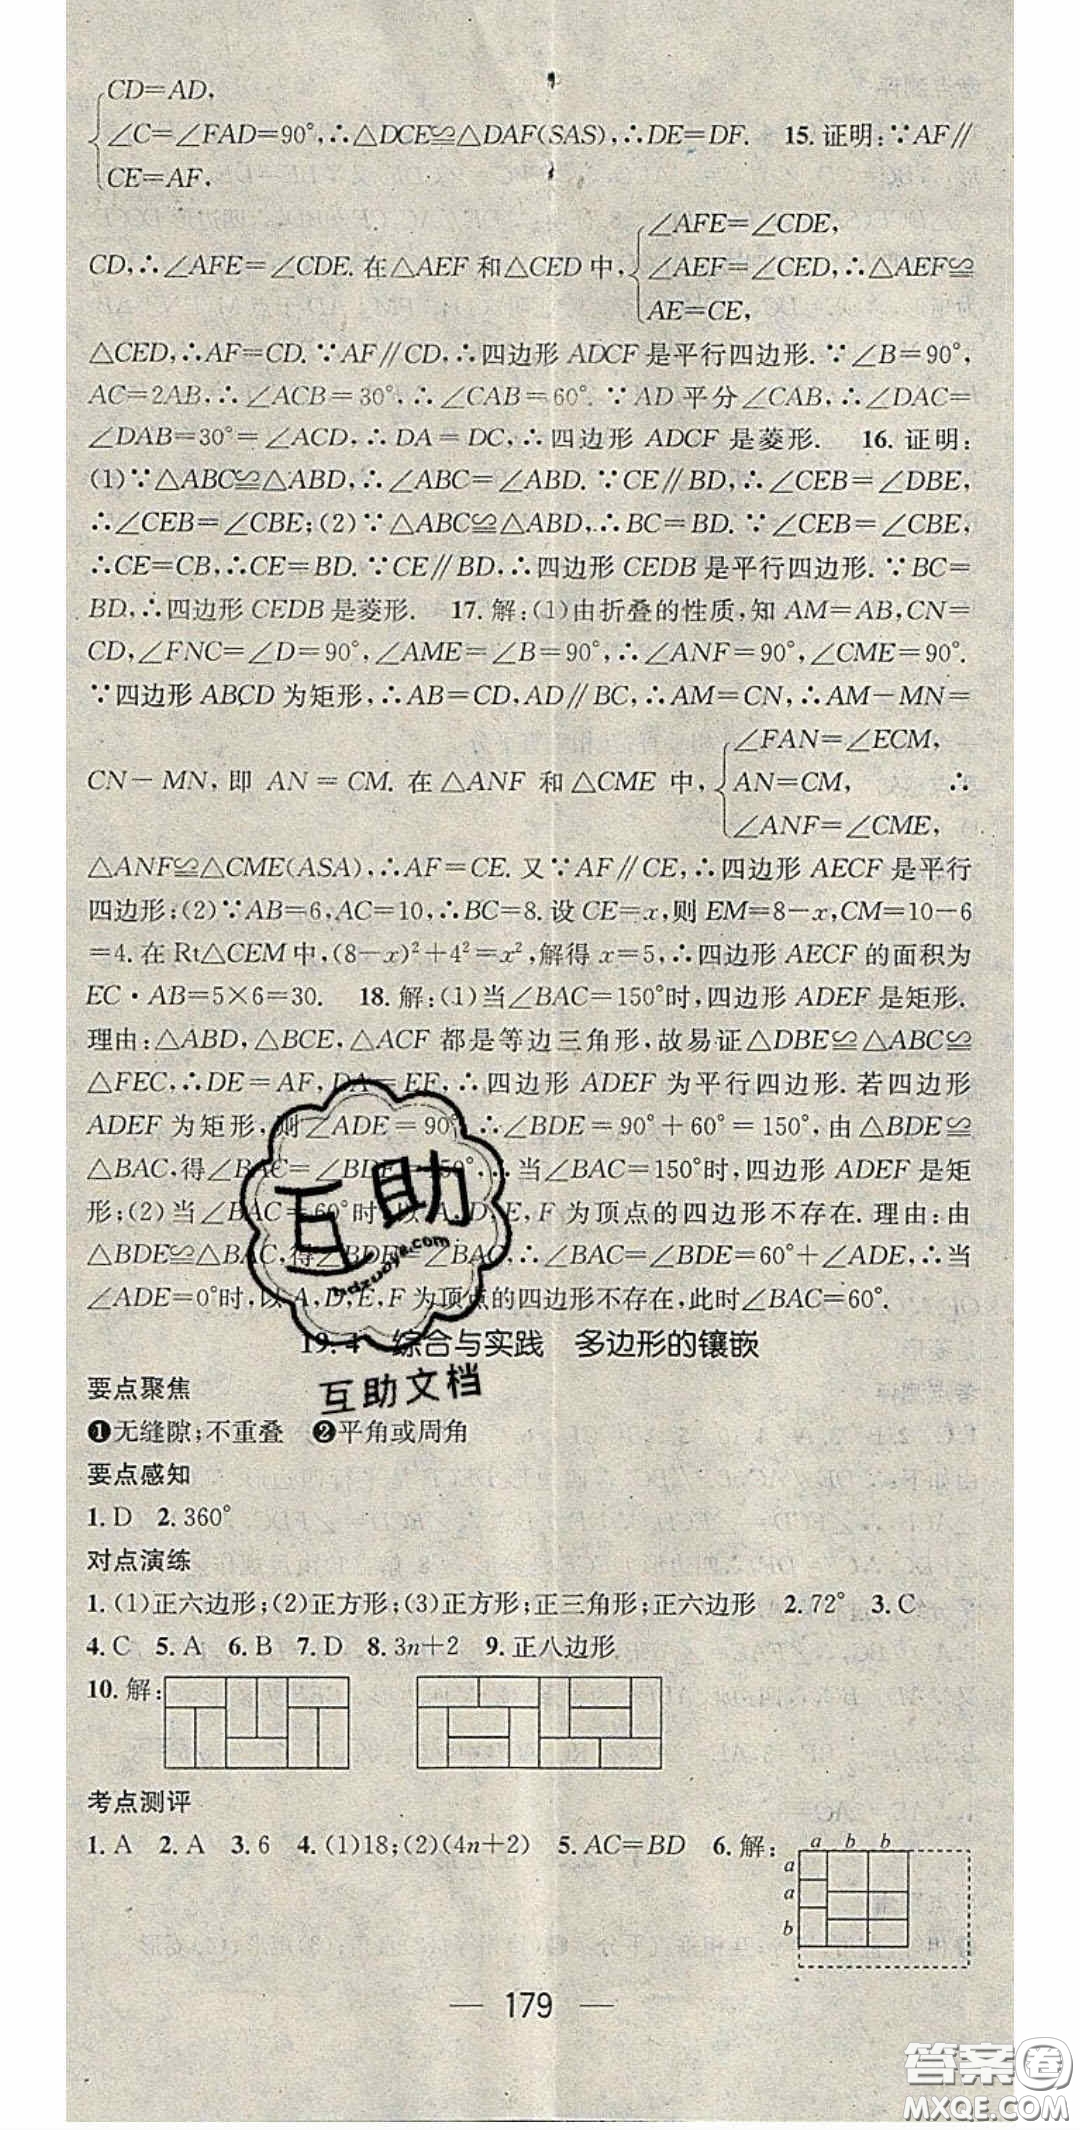 CD=AD,
∠C=∠FAD=90°,∴△DCE≌△DAF(SAS),∴DE=DF. 15.证明:∵AF∥
CE=AF.
∠AFE=∠CDE,
CD,∴∠AFE=∠CDE.在△AEF和△CED中,∠AEF=∠CED,∴△AEF≌
AE=CE,
△CED,∴AF=CD.∵AF∥CD,∴四边形ADCF是平行四边形.∵∠B=90°,
AC=2AB,∴∠ACB=30°,∴∠CAB=60°.∵AD平分∠CAB,∴∠DAC=
∠DAB=30°=∠ACD,∴DA=DC,∴四边形ADCF是菱形. 16.证明:
(1)∵△ABC≌△ABD,∴∠ABC=∠ABD.∵CE∥BD,∴∠CEB=∠DBE,
∴∠CEB=∠CBE;(2)∵△ABC≌△ABD,∴BC=BD.∵∠CEB=∠CBE,
∴CE=CB,∴CE=BD.∵CE∥BD,∴四边形CEDB是平行四边形.∵BC=
BD,∴四边形CEDB是菱形. 17.解:(1)由折叠的性质,知AM=AB,CN=
CD,∠FNC=∠D=90°,∠AME=∠B=90°,∴∠ANF=90°,∠CME=90°.
∵四边形ABCD为矩形,∴AB=CD,AD∥BC,∴AM=CN,∴AM-MN=
∠FAN=∠ECM,
CN-MN,即AN=CM.在△ANF和△CME中,AN=CM, ∴
∠ANF=∠CME,
△ANF≌△CME(ASA),∴AF=CE.又∵AF∥CE,∴四边形AECF是平行
四边形;(2)∵AB=6,AC=10,∴BC=8.设CE=x,则EM=8-x,CM=10-6
=4.在Rt△CEM中,(8-x)²+4²=x²,解得x=5,∴四边形AECF的面积为
EC·AB=5×6=30. 18.解:(1)当∠BAC=150°时,四边形ADEF是矩形.
理由:△ABD,△BCE,△ACF都是等边三角形,故易证△DBE≌△ABC≌
△FEC,∴DE=AF,DA=EF,∴四边形ADEF为平行四边形.若四边形
ADEF为矩形,则∠ADE=90°,∴∠BDE=90°+60°=150°,由△BDE≌
△BAC,得∠BAC=∠BDE=150°,∴当∠BAC=150°时,四边形ADEF是矩
形;(2)当∠BAC=60°时,以A,D,E,F为顶点的四边形不存在.理由:由
△BDE≌△BAC,得∠BDE=∠BAC,∴∠BAC=∠BDE=60°+∠ADE,∴当
∠ADE=0°时,以A,D,E,F为顶点的四边形不存在,此时∠BAC=60°.
19.4 综合与实践 多边形的镶嵌
互助
bdzuoye.com
互助文档
要点聚焦
❶无缝隙;不重叠 ❷平角或周角
要点感知
1.D 2.360°
对点演练
1.(1)正六边形;(2)正方形;(3)正方形;正三角形;正六边形 2.72° 3.C
4.C 5.A 6.B 7.D 8.3n+2 9.正八边形
10.解:
考点测评
1.A 2.A 3.6 4.(1)18;(2)(4n+2) 5.AC=BD 6.解:
a b b
a
a
b
— 179 —
答案圈
MXQE.COM